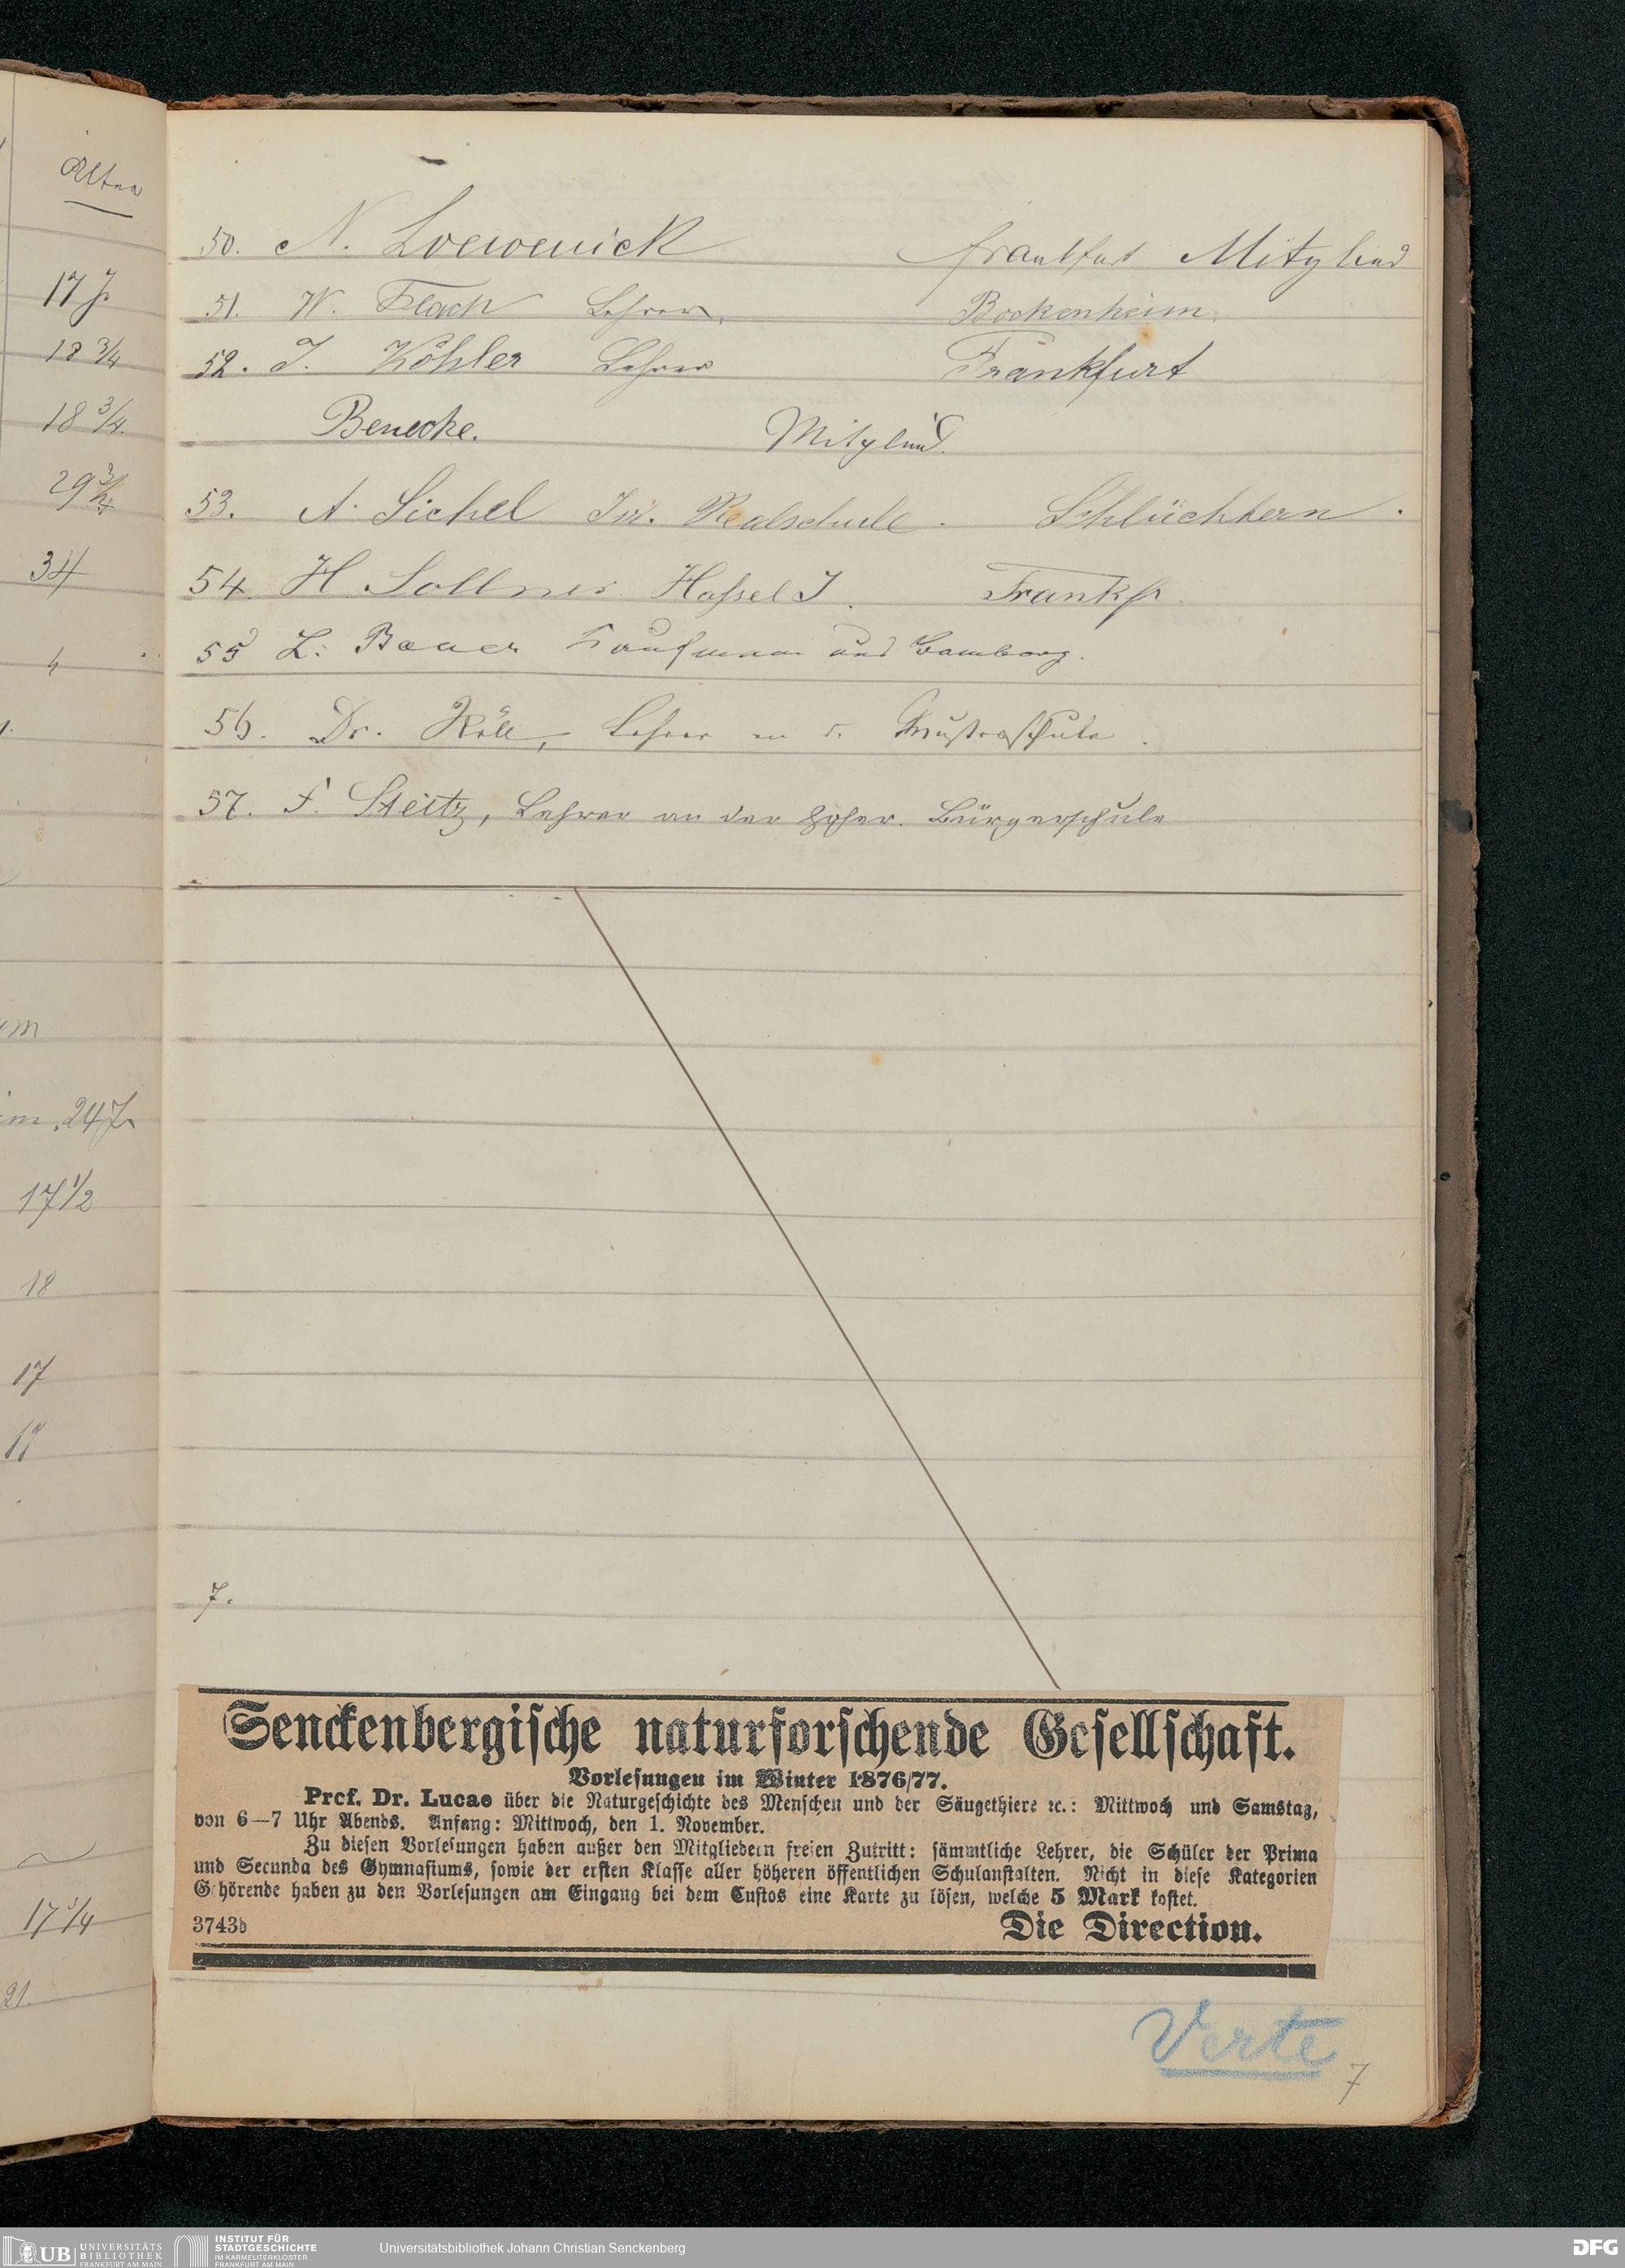 Alter
17 J
18 3/4
18 3/4
34
4
24 J
17 1/2
18
17
21.
50. N. Loewenick Frankfurt Mitglied
51. W. Flach Lehrer, Bockenheim.
52. J. Köhler Lehrer Frankfurt
Benecke. Mitglied.
53. A. Sichel Isr. Realschule. Schlüchtern.
54. H Sollner Frankf.
55 L. Baaer Kaufmann aus Bamberg.
56. Dr. Köll, Lehrer an d. Musterschule.
57. F. Steitz, Lehrer an der höher. Bürgerschule
7.
Senckenbergische naturforschende Gesellschaft.
Vorlesungen im Winter 1876/77.
Prof. Dr. Lucae über die Naturgeschichte des Menschen und der Säugethiere ꝛc.: Mittwoch und Samstag,
von 6—7 Uhr Abends. Anfang: Mittwoch, den 1. November.
Zu diesen Vorlesungen haben außer den Mitgliedern freien Zutritt: sämmtliche Lehrer, die Schüler der Prima
und Secunda des Gymnasiums, sowie der ersten Klasse aller höheren öffentlichen Schulanstalten. Nicht in diese Kategorien
Gehörende haben zu den Vorlesungen am Eingang bei dem Custos eine Karte zu lösen, welche 5 Mark kostet.
3743b Die Direction.
Verte
7
UB UNIVERSITÄTS
BIBLIOTHEK
FRANKFURT AM MAIN
INSTITUT FÜR
STADTGESCHICHTE
IM KARMELITERKLOSTER
FRANKFURT AM MAIN
Universitätsbibliothek Johann Christian Senckenberg
DFG